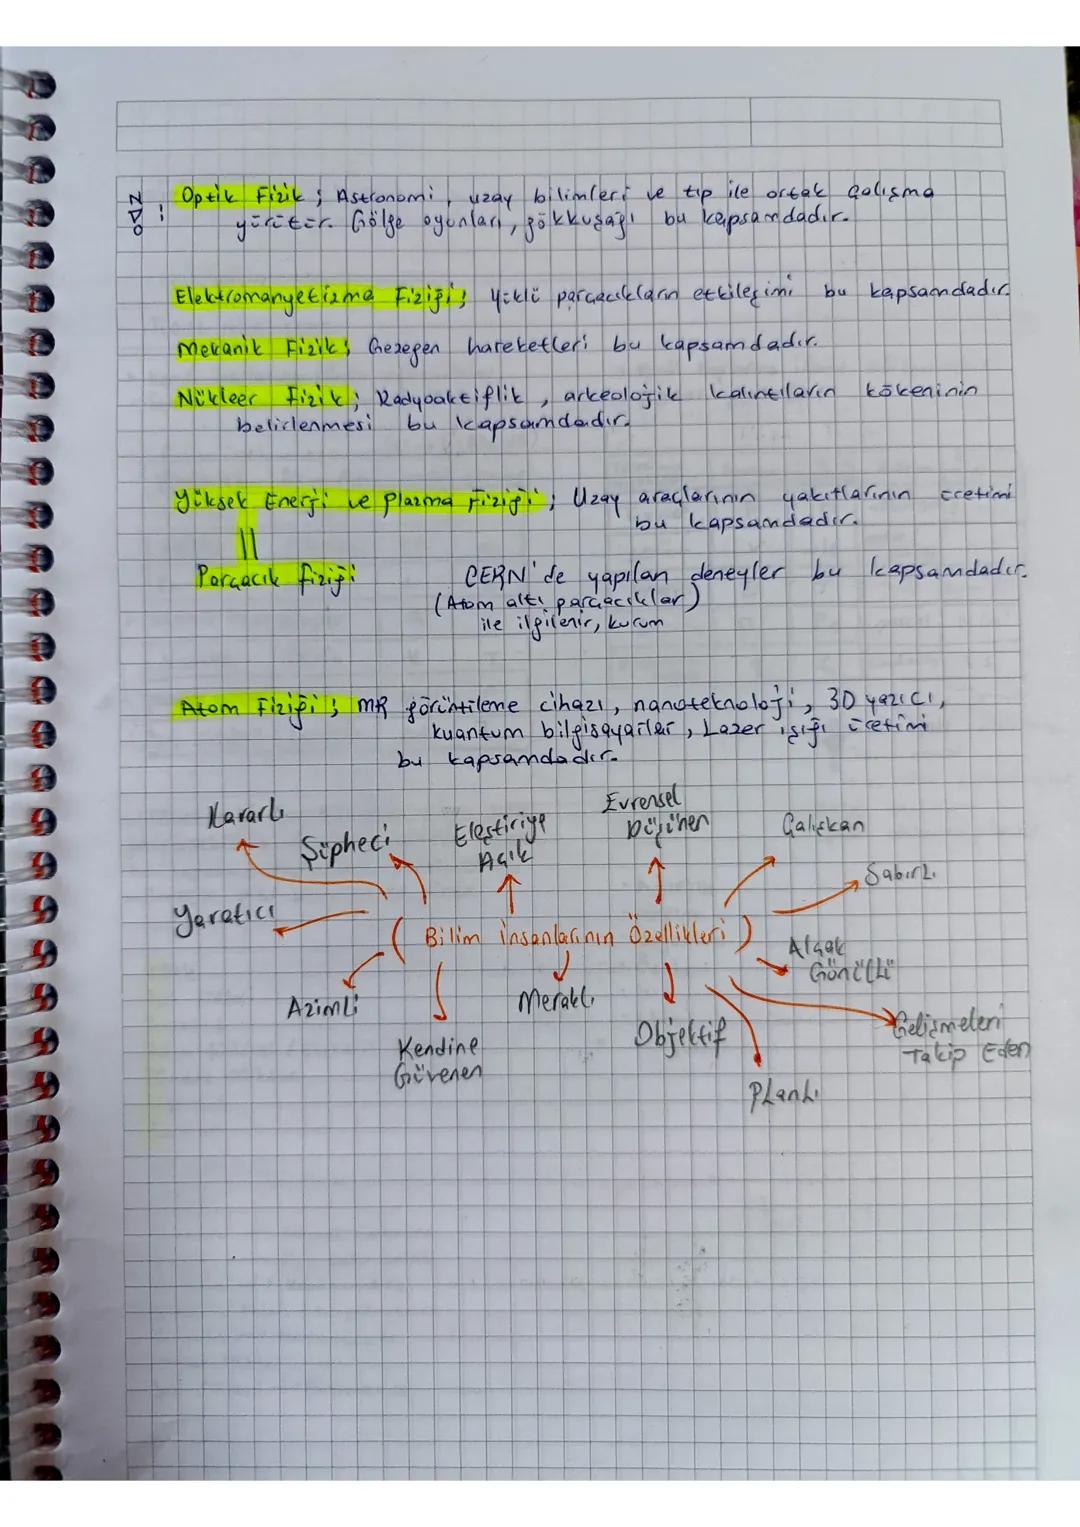 NOT:
Optik Fizik ; Astronomi, uzay bilimleri ve tıp ile ortak çalışma
yürütür. Gölge oyunları, gökkuşağı bu kapsamdadır.
Elektromanyetizma Fiziği; Yüklü parçacıkların etkileşimi bu kapsamdadır.
Mekanik Fizik; Gezegen hareketleri bu kapsamdadır.
Nükleer Fizik; Radyoaktiflik, arkeolojik kalıntıların kökeninin
belirlenmesi bu kapsamdadır.
Yüksek Enerji ve Plazma Fiziği; Uzay araçlarının yakıtlarının üretimi
bu kapsamdadır.
Parçacık fiziği CERN'de yapılan deneyler bu kapsamdadır.
(Atom altı parçacıklar)
ile ilgilenir, kurum
Atom Fiziği; MR görüntüleme cihazı, nanoteknoloji, 3D yazıcı,
kuantum bilgisayarlar, Lazer ışığı üretimi
bu kapsamdadır.
Kararlı
Şüpheci
Eleştiriye
Açık
Evrensel
Düşünen
Çalışkan
Sabırlı
Yaratıcı
(Bilim insanlarının Özellikleri)
Alçak
Gönüllü
Azimli
Kendine
Güvenen
Meraklı
Objektif
Planlı
Gelişmeleri
Takip Eden